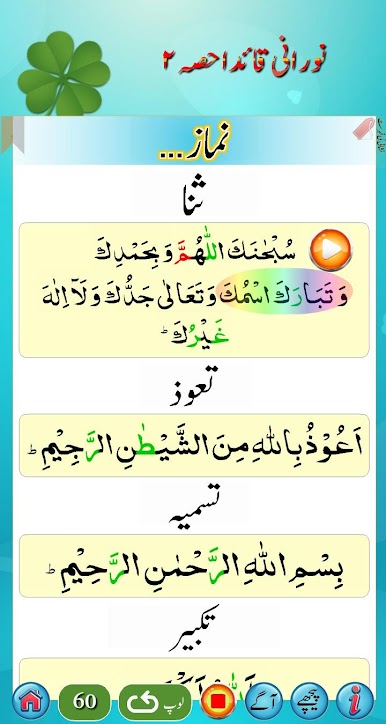 نورانی قائدا حصہ ۲
نماز...
ثنا
سُبْحٰنَكَ اللّٰهُمَّ وَ بِحَمْدِكَ
وَ تَبَارَكَ اسْمُكَ وَ تَعَالٰی جَدُّكَ وَ لَآ اِلٰهَ
غَيْرُكَ ؕ
تعوذ
اَعُوْذُ بِاللّٰهِ مِنَ الشَّيْطٰنِ الرَّجِيْمِ ؕ
تسمیہ
بِسْمِ اللّٰهِ الرَّحْمٰنِ الرَّحِيْمِ ؕ
تکبیر
60
لوپ
آگے
پیچھے
i